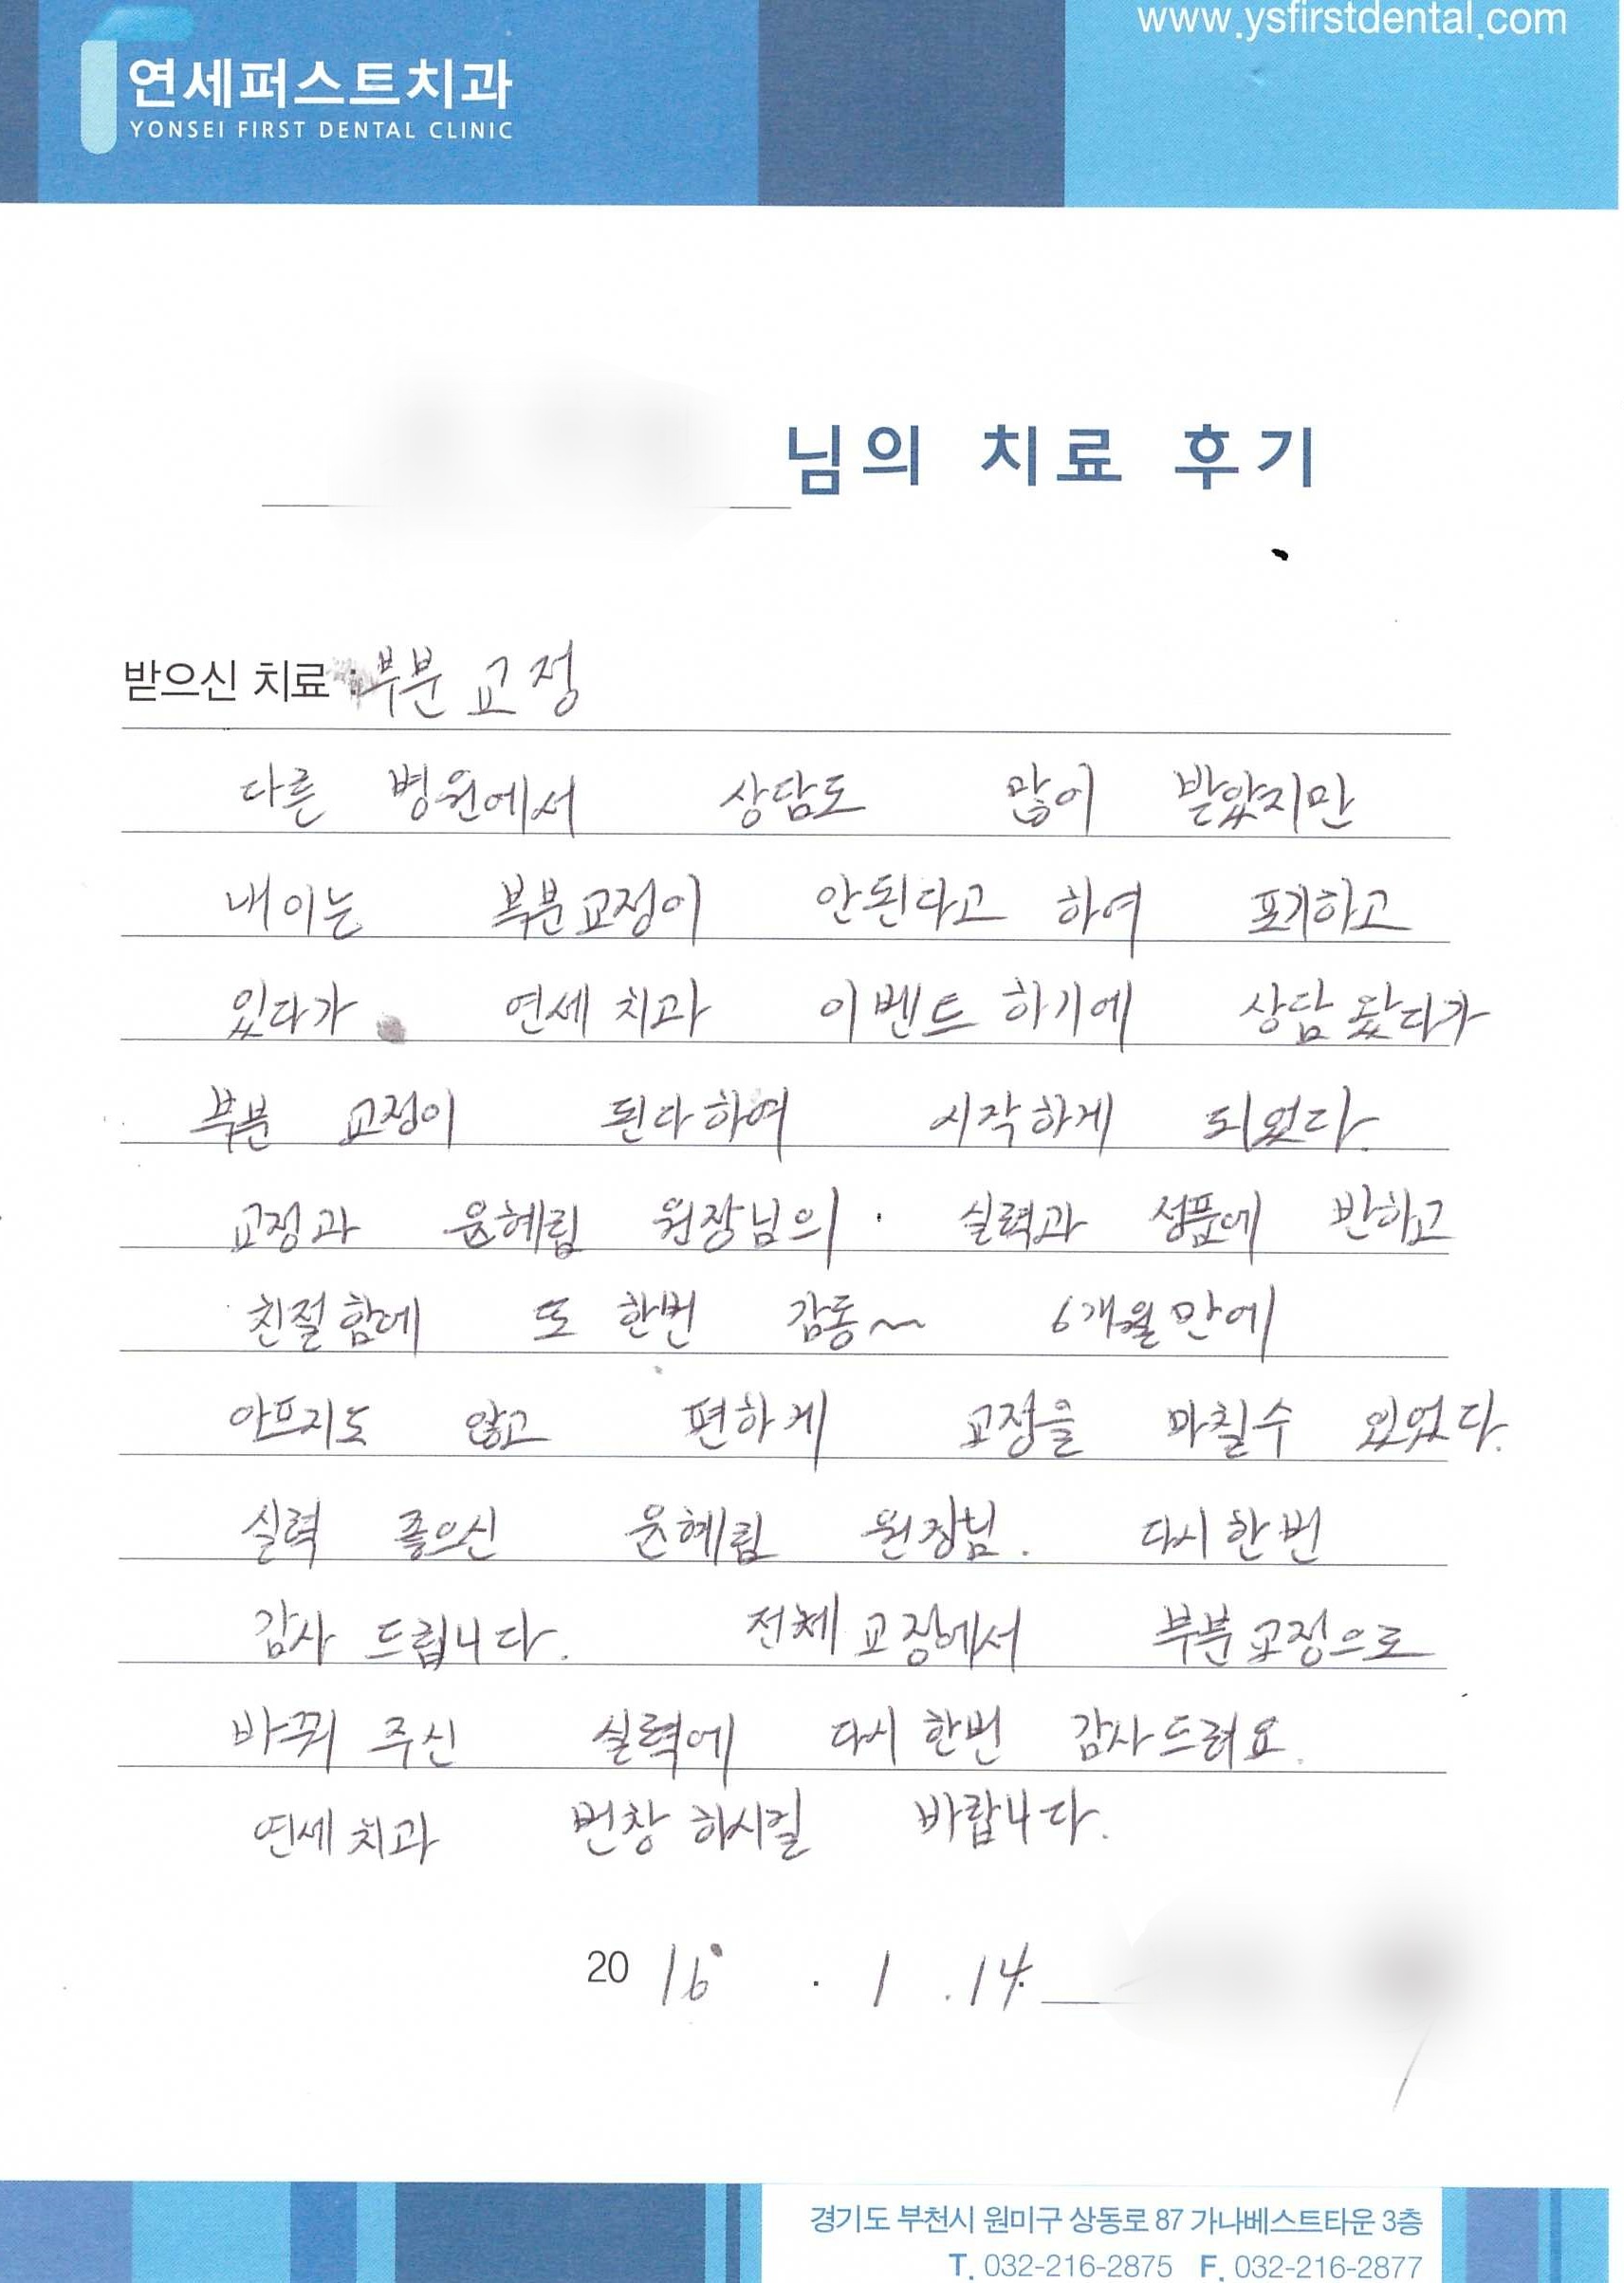 www.ysfirstdental.com
연세퍼스트치과
YONSEI FIRST DENTAL CLINIC
님의 치료 후기
받으신 치료 : 부분 교정
다른 병원에서 상담도 많이 받았지만
내 이는 부분교정이 안된다고 하여 포기하고
있다가 연세 치과 이벤트 하기에 상담 왔다가
부분 교정이 된다하여 시작하게 되었다.
교정과 윤혜림 원장님의 실력과 성품에 반하고
친절함에 또 한번 감동~ 6개월만에
아프지도 않고 편하게 교정을 마칠수 있었다.
실력 좋으신 윤혜림 원장님. 다시한번
감사 드립니다. 전체 교정에서 부분교정으로
바꿔 주신 실력에 다시 한번 감사드려요.
연세 치과 번창 하시길 바랍니다.
2016 . 1 . 14.
경기도 부천시 원미구 상동로 87 가나베스트타운 3층
T. 032-216-2875 F. 032-216-2877